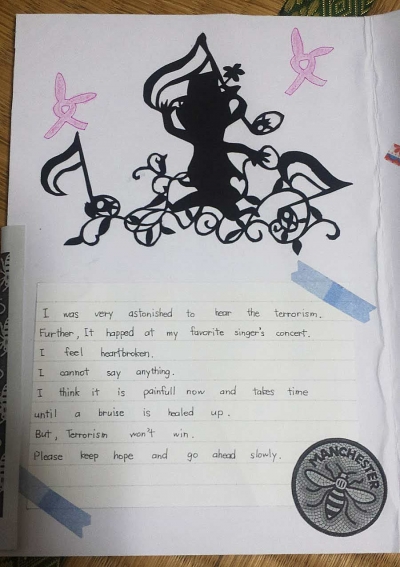 I was very astonished to hear the terrorism.
Further, It happed at my favorite singer's concert.
I feel heartbroken.
I cannot say anything.
I think it is painfull now and takes time
until a bruise is healed up.
But, Terrorism won't win.
Please keep hope and go ahead slowly.
MANCHESTER